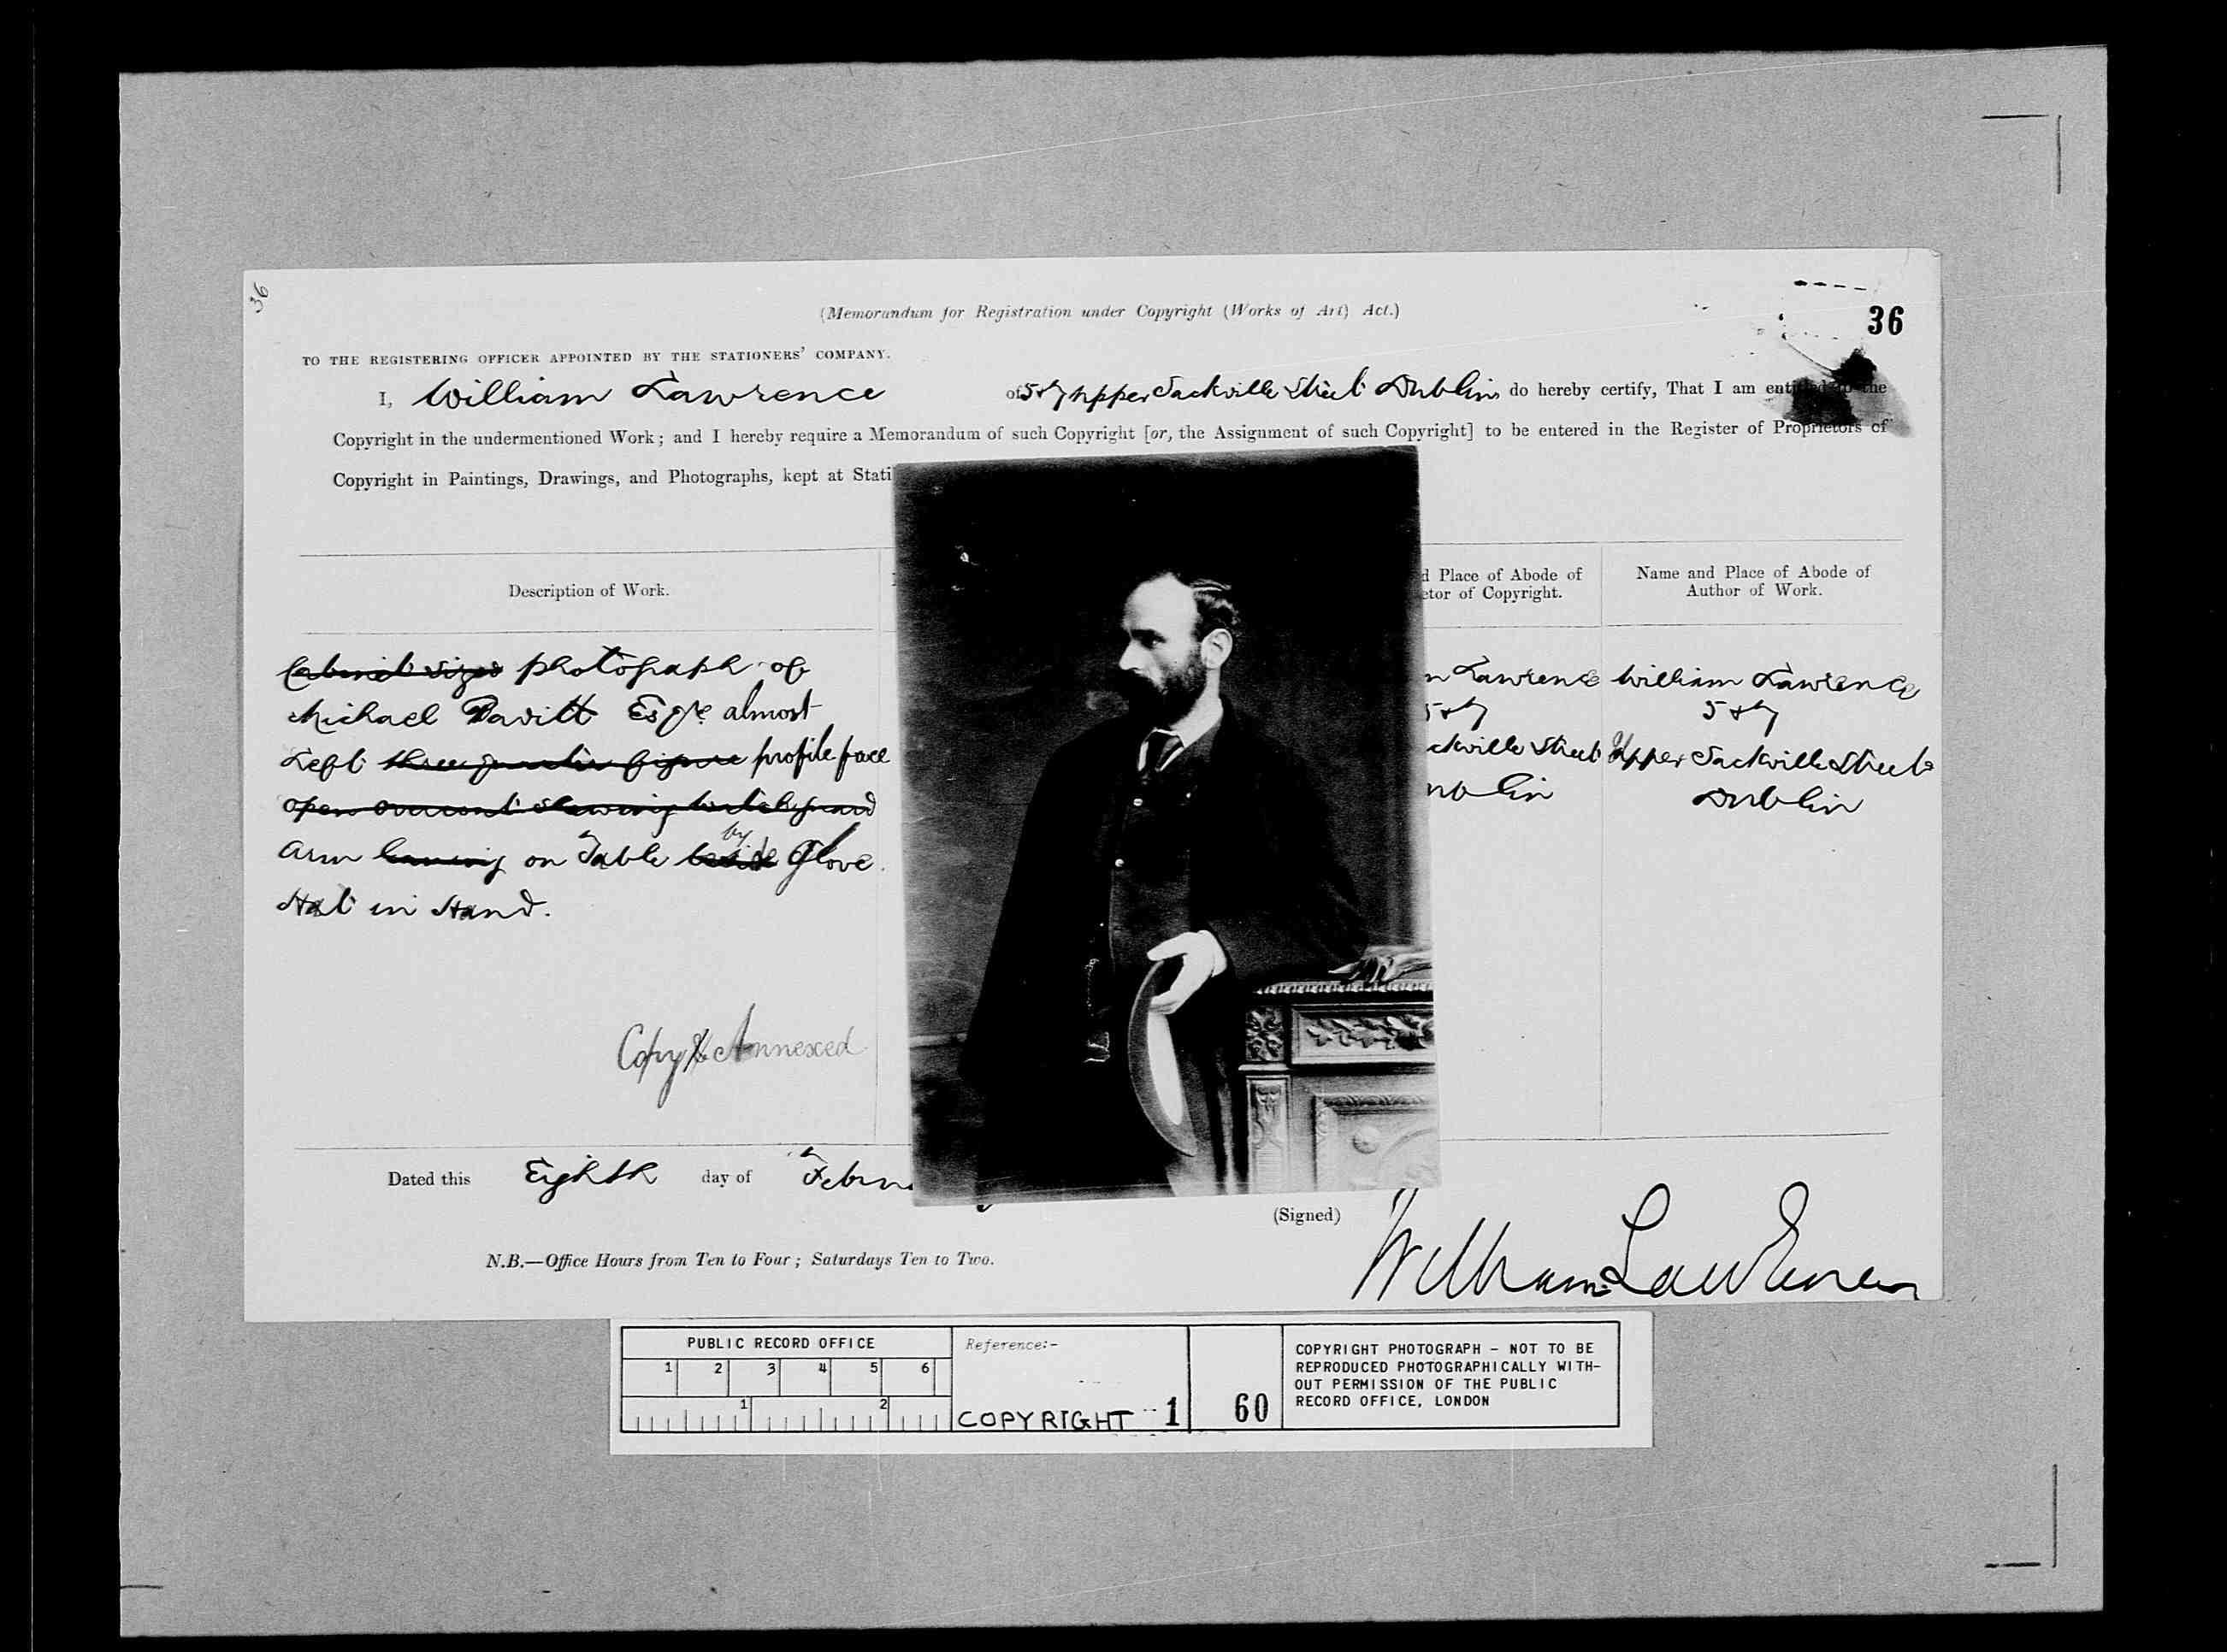 36
(Memorandum for Registration under Copyright (Works of Art) Act.)
36
TO THE REGISTERING OFFICER APPOINTED BY THE STATIONERS' COMPANY.
I, William Lawrence of 5 & 7 Upper Sackville Street Dublin do hereby certify, That I am entitled to the
Copyright in the undermentioned Work; and I hereby require a Memorandum of such Copyright [or, the Assignment of such Copyright] to be entered in the Register of Proprietors of
Copyright in Paintings, Drawings, and Photographs, kept at Stati
Description of Work.
d Place of Abode of
etor of Copyright.
Name and Place of Abode of
Author of Work.
Cabinet sized photograph of
Michael Davitt Esqre almost
Left three quarter figure profile face
open overcoat showing watchguard
Arm leaning on Table by beside Glove.
Hat in Hand.
Copy Annexed
n Lawrence
5 & 7
ckville Street
ublin
William Lawrence
5 & 7
Upper Sackville Street
Dublin
Dated this Eighth day of Febru
(Signed) William Lawrence
N.B.—Office Hours from Ten to Four; Saturdays Ten to Two.
PUBLIC RECORD OFFICE
1 2 3 4 5 6
1 2
Reference:-
COPYRIGHT 1 60
COPYRIGHT PHOTOGRAPH - NOT TO BE
REPRODUCED PHOTOGRAPHICALLY WITH-
OUT PERMISSION OF THE PUBLIC
RECORD OFFICE, LONDON